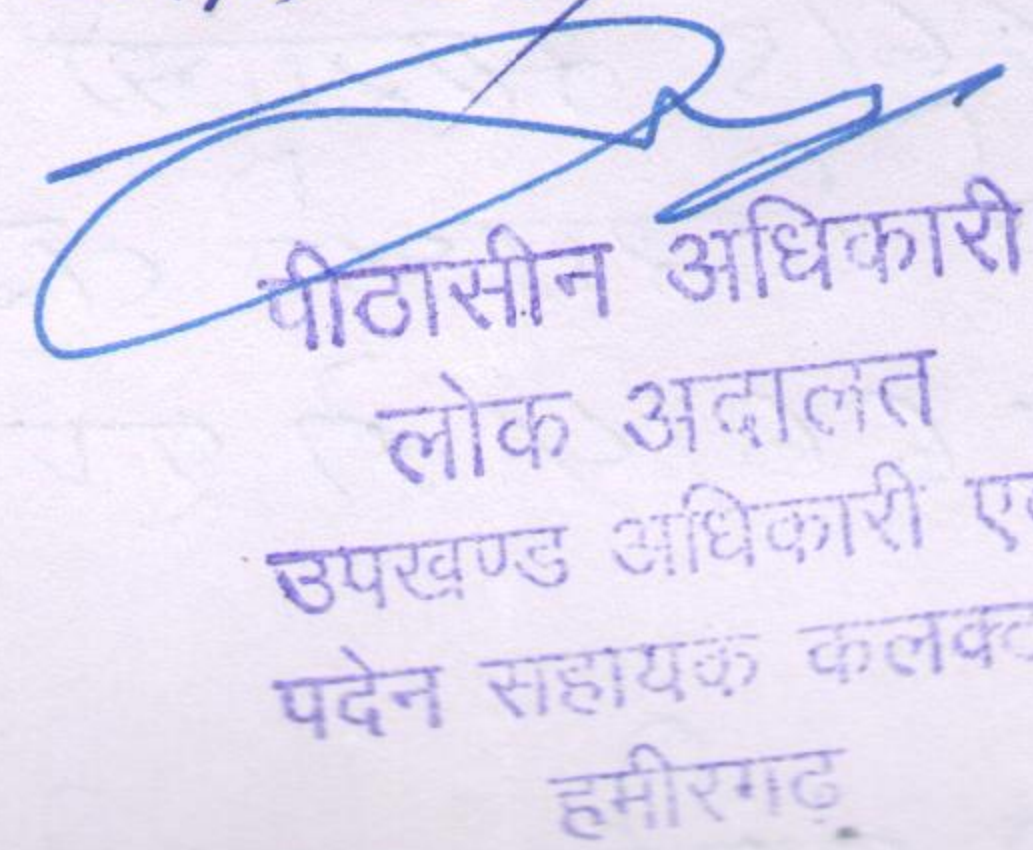 पीठासीन अधिकारी
लोक अदालत
उपखण्ड अधिकारी
पदेन सहायक
हमीरगढ़